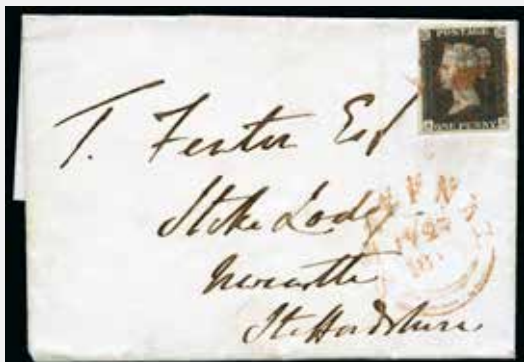 POSTAGE
ONE PENNY
T. Fenton Esq
Stoke Lodge
Newcastle
Staffordshire